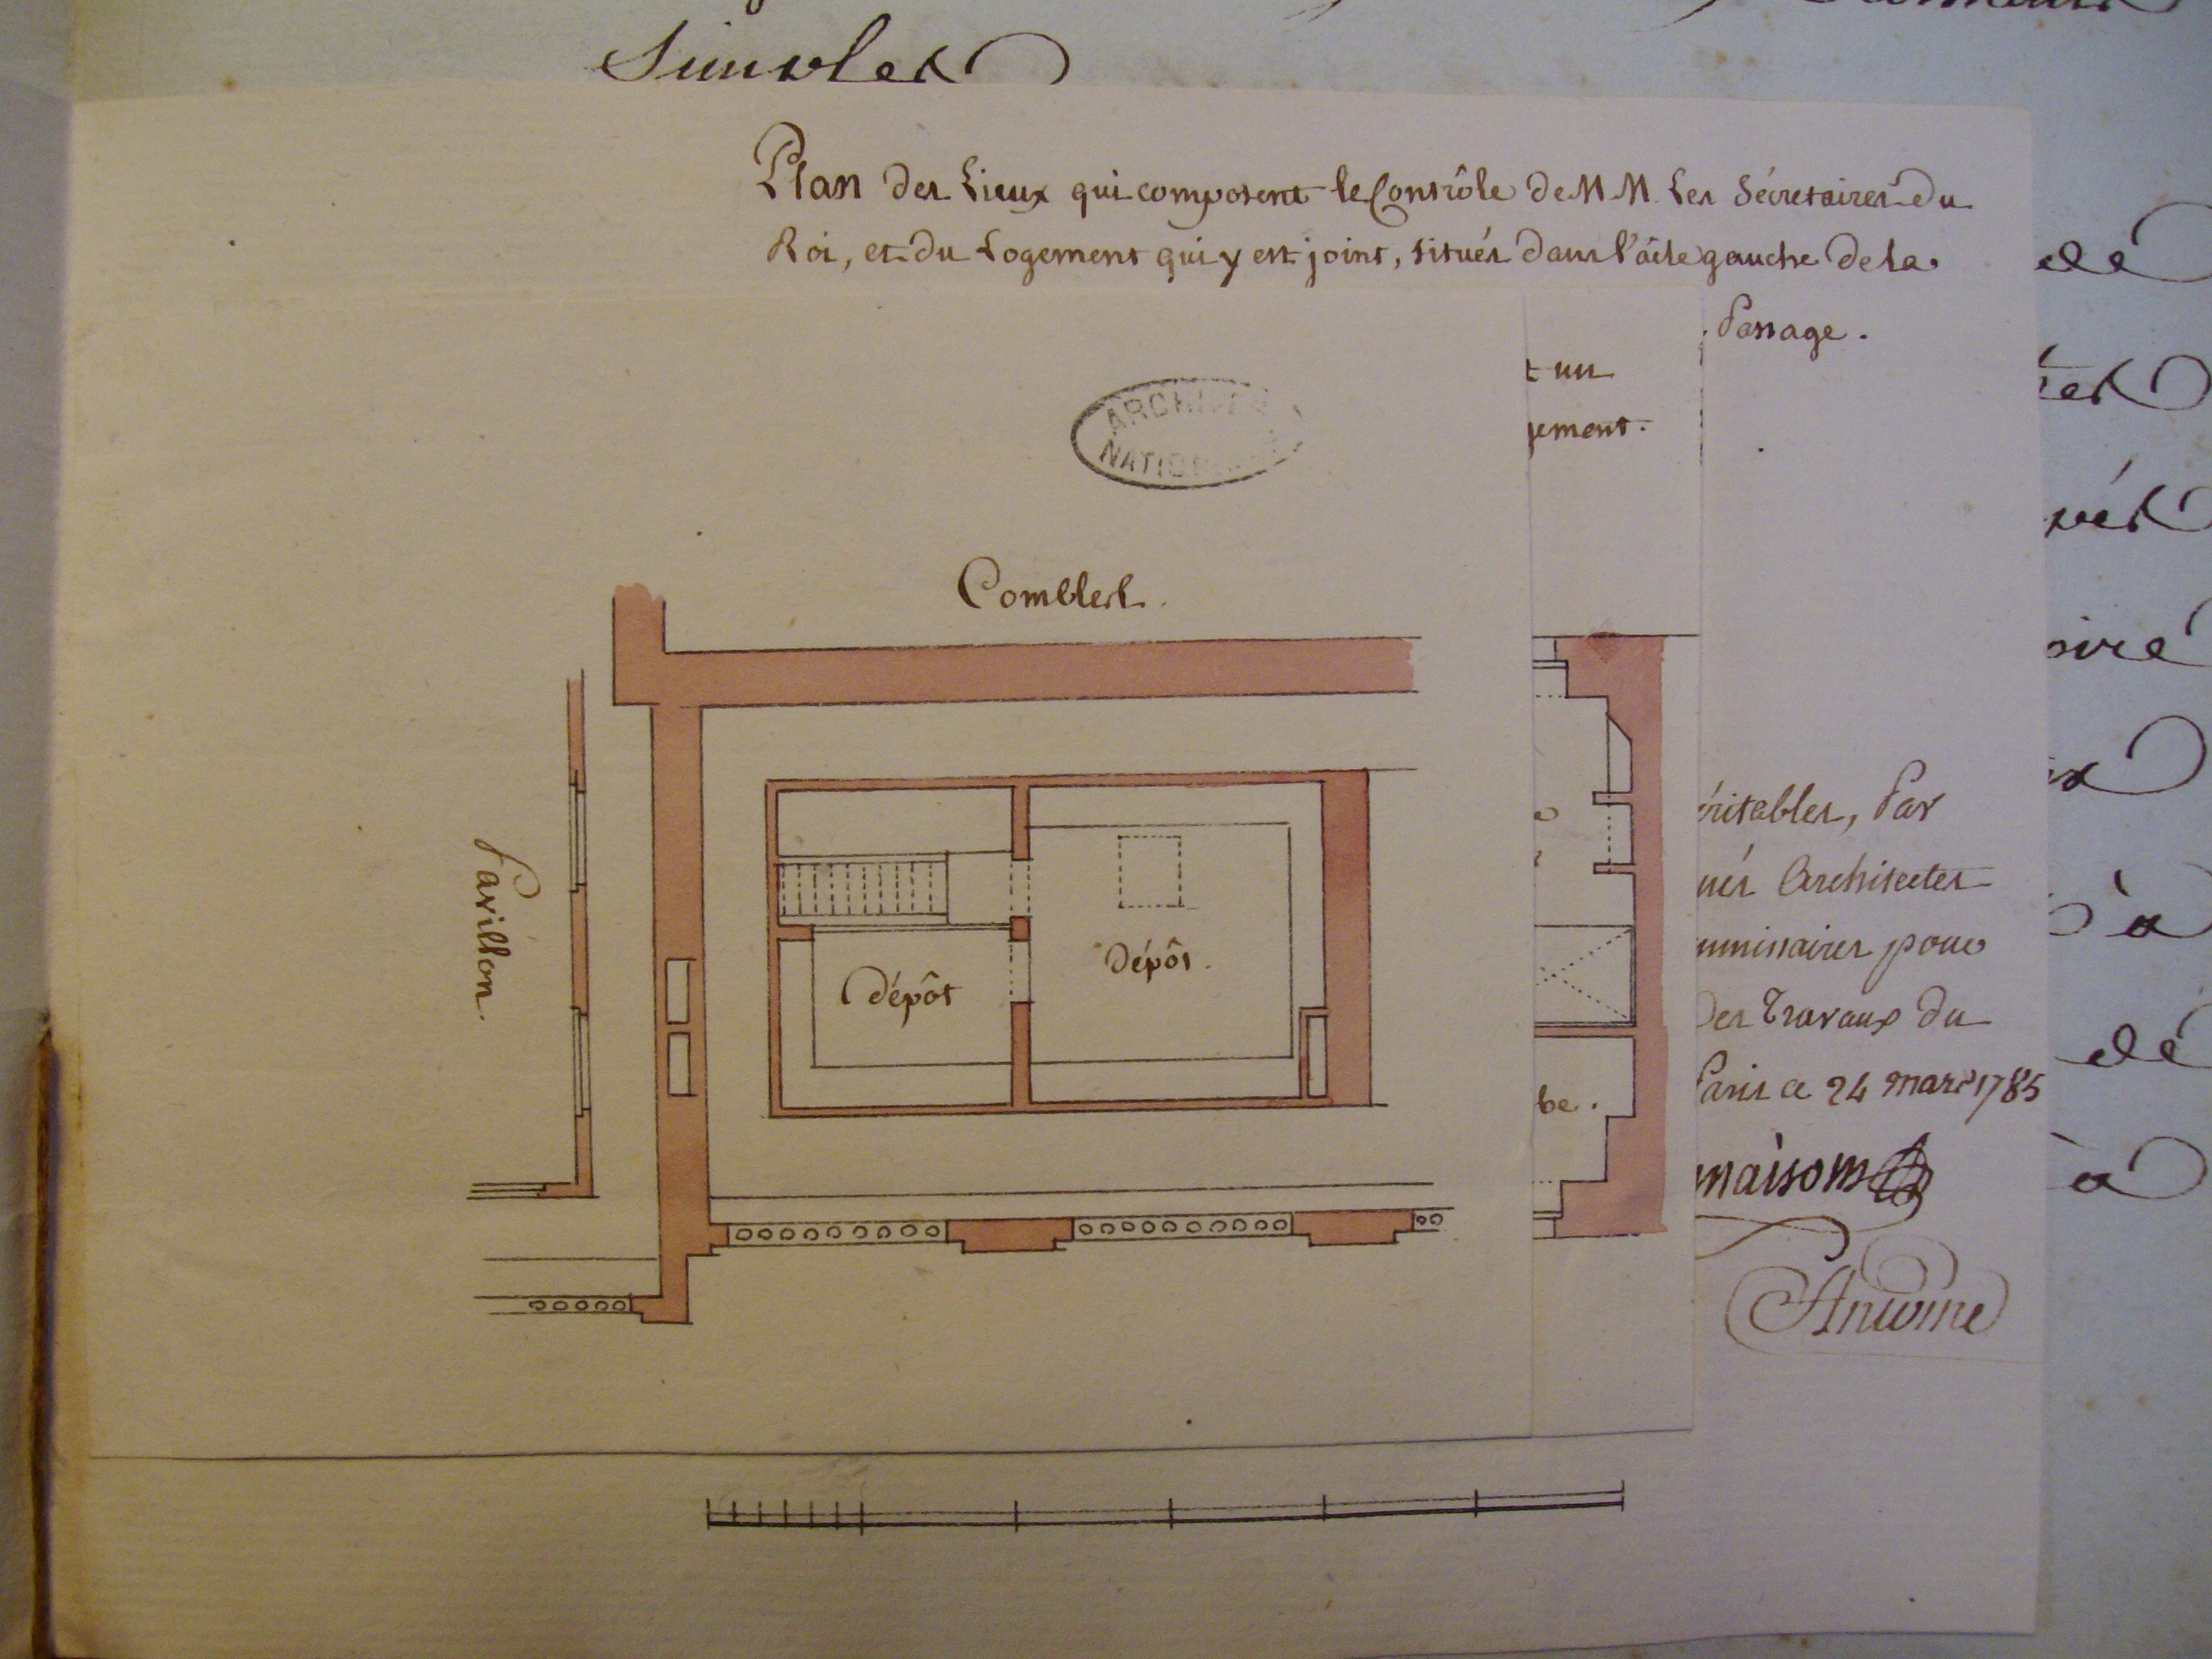 Simples
Plan des Lieux qui composent le Contrôle de MM. Les Sécretaires du
Roi, et du Logement qui y est joint, situés dans l'aîle gauche de la
Passage.
t un
gement.
ARCHIVES
NATIONALES
Combles.
Pavillon.
Dépôt
Dépôt.
be.
éritables, Par
nés Architectes
mmissaires pour
Des Travaux du
Paris ce 24 mars 1785
maisons
Antoine